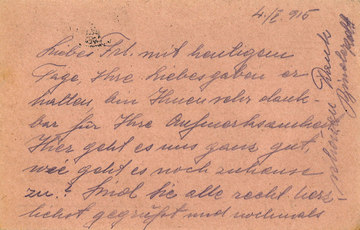 4./I. 915
Liebes Frl. mit heutigem
Tage, Ihre Liebesgaben er
halten, bin Ihnen sehr dank-
bar für Ihre Aufmerksamkeit
Hier geht es uns ganz gut,
wie geht es noch zuhause
zu? Sind Sie alle recht herz
lichst gegrüßt und nochmals
Dank